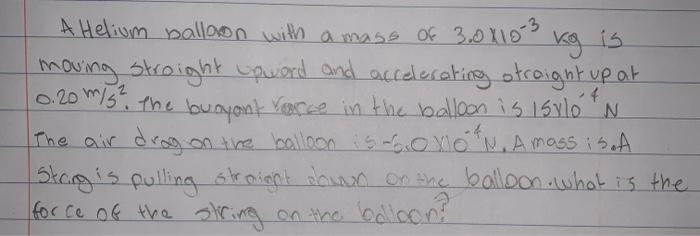 A Helium balloon with a mass of 3.0x10⁻³ kg is
moving straight upward and accelerating straight up at
0.20 m/s². The buoyant force in the balloon is 15x10⁻⁴ N
The air drag on the balloon is -5.0x10⁻⁴N. A mass is.A
String is pulling straight down on the balloon.what is the
force of the string on the balloon?